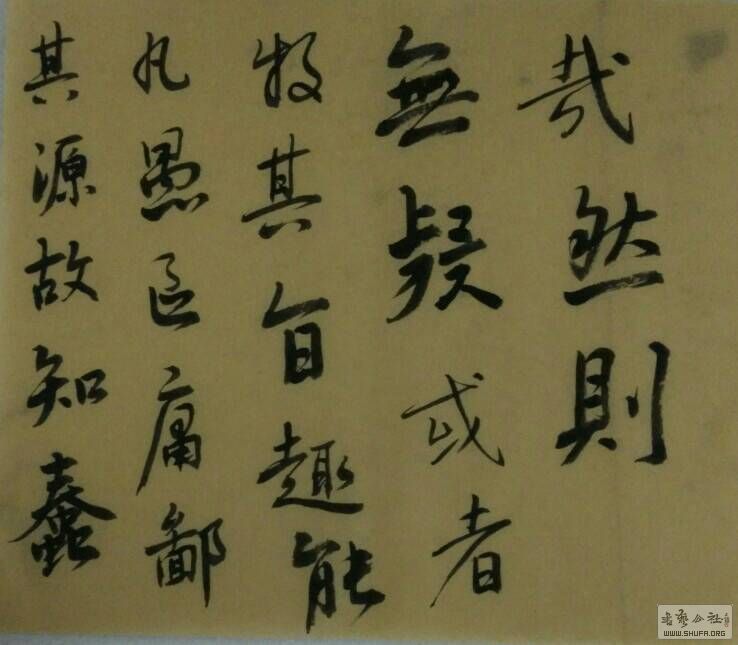 哉然則
無疑或者
投其旨趣能
凡愚區庸鄙
其源故知蠢
书艺公社
WWW.SHUFA.ORG